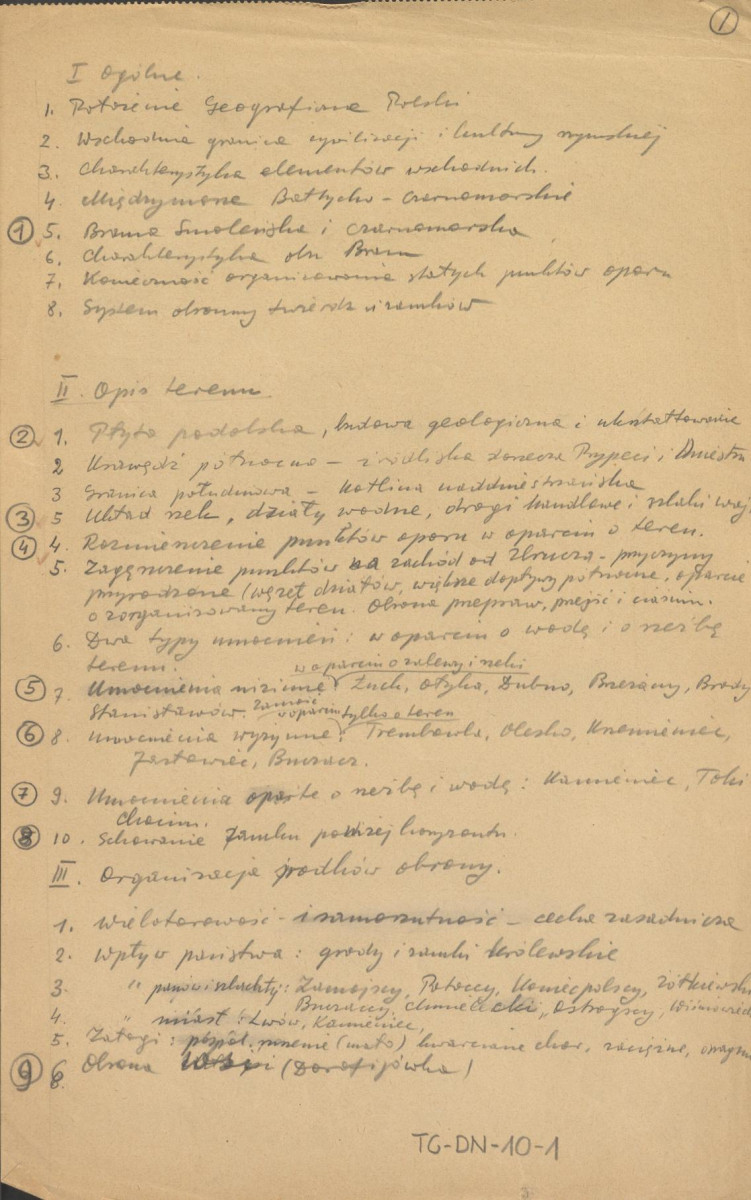 1
I Ogólne.
1. Położenie Geograficzne Polski
2. Wschodnia granica cywilizacji i kultury rzymskiej
3. Charakterystyka elementów wschodnich.
4. Międzymorze Bałtycko - czarnomorskie
1 5. Brama Smoleńska i czarnomorska
6. Charakterystyka obu Bram
7. Konieczność organizowania stałych punktów oporu
8. System obronny twierdz i zamków
II. Opis terenu
2 1. Płyta podolska, budowa geologiczna i ukształtowanie
2 Krawędź północna - źródliska dorzecza Prypeci i Dniestru
3 Granica południowa - kotlina naddniestrzańska
3 5 Układ rzek, działy wodne, drogi handlowe i szlaki woj.
4 4. Rozmieszczenie punktów oporu w oparciu o teren.
5. Zagęszczenie punktów na zachód od Zbrucza - przyczyny
przyrodzone (węzeł działów, większe dopływy północne, oparcie
o zorganizowany teren. Obrona przepraw, przejść i
6. Dwa typy umocnień: w oparciu o wodę i o rzeźbę
terenu.
w oparciu o zalewy i rzeki
5 7. Umocnienia nizinne Łuck, Ołyka, Dubno, Brzeżany, Brody
Stanisławów. Zamość
w oparciu tylko o teren
6 8. umocnienia wyżynne: Trembowla, Olesko, Krzemieniec,
Jazłowiec, Buczacz.
7 9. Umocnienia oparte o rzeźbę i wodę: Kamieniec, Toki
Chocim.
8 10. Schowanie zamku poniżej horyzontu.
III. Organizacja środków obrony.
1. Wielotorowość - i samorzutność - cecha zasadnicza
2. Wpływ państwa: grody i zamki królewskie
3. " panów i szlachty: Zamojscy, Potoccy, Koniecpolscy, Żółkiewski
Buczaccy, Chmielecki, Ostrogscy, Wiśniowiec
4. " miast: Lwów, Kamieniec,
5. Załogi: pospol. ruszenie (mało) kwarciane chor, zaciężne,
9 6 Obrona wsi (Dorofijówka)
8.
TG-DN-10-1